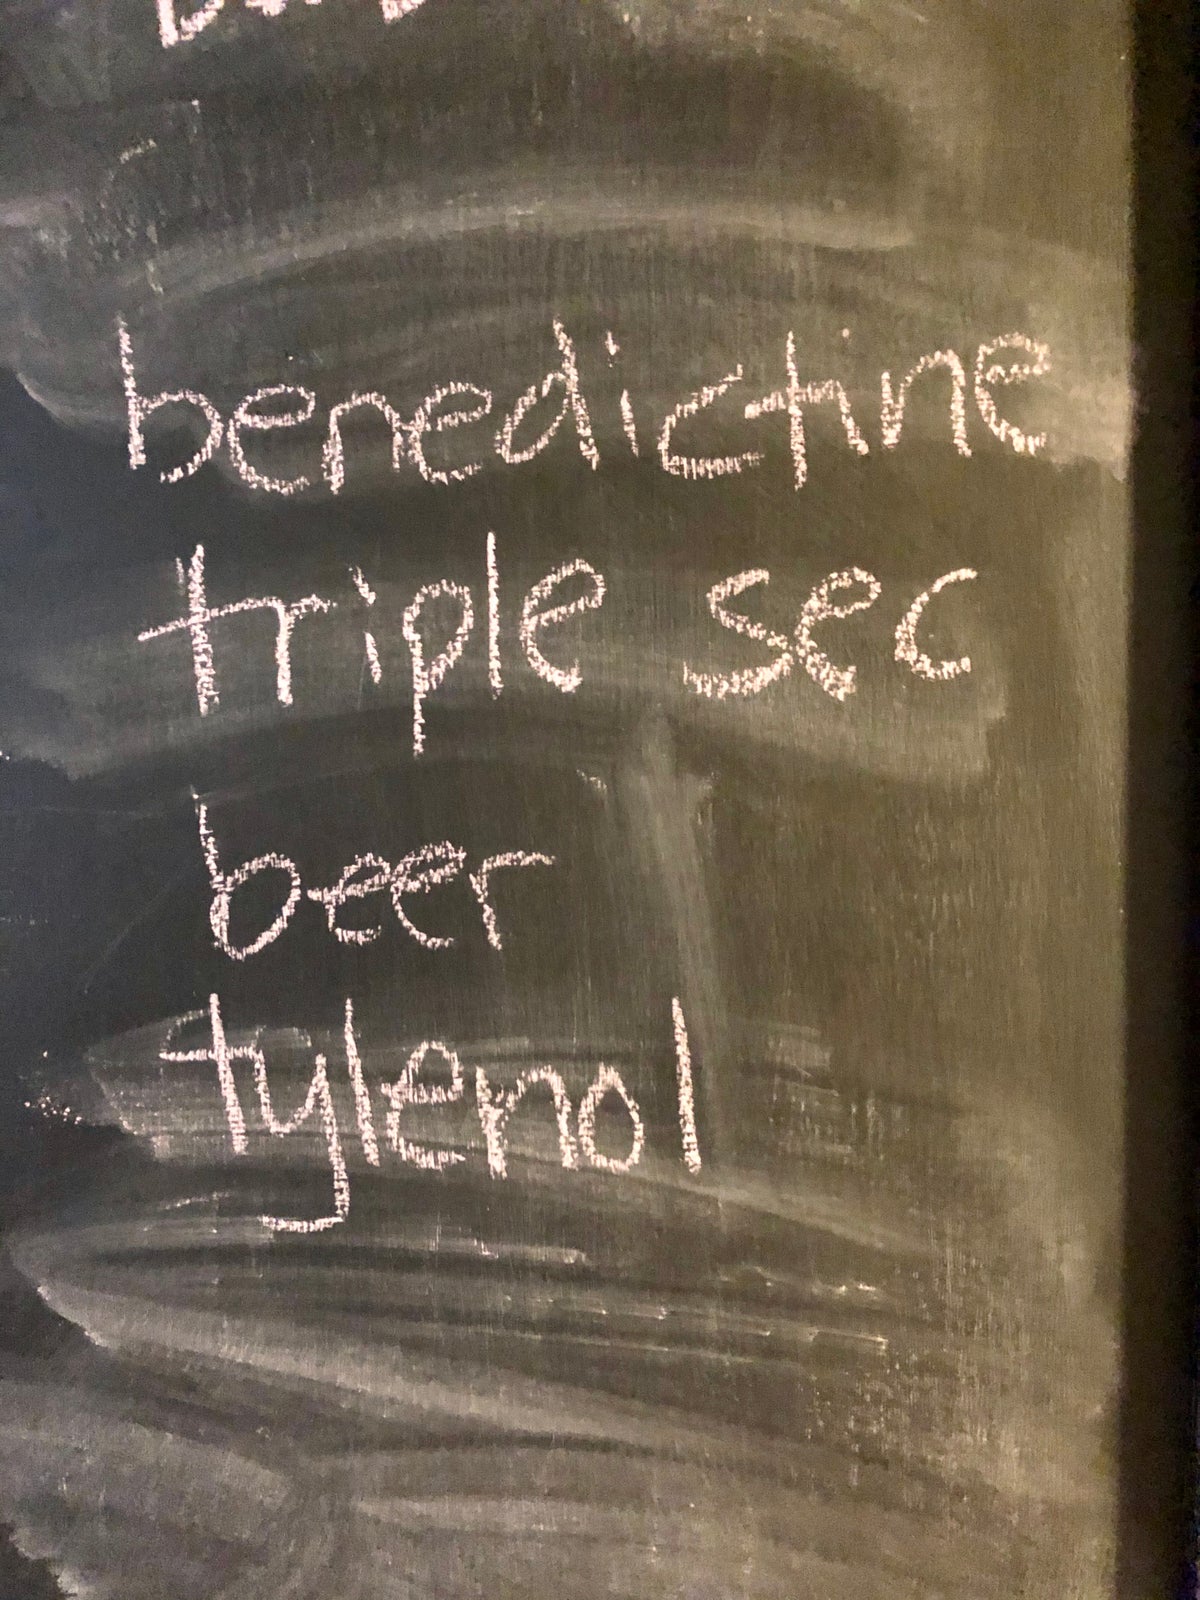 benedictine
triple sec
beer
tylenol